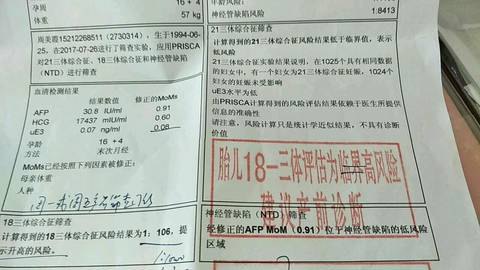 孕周 16 + 4
57 kg
年龄风险
神经管缺陷风险
1:8413
周美霞15212268511(2730314),生于1994-06-
25,在2017-07-26进行了筛查实验,应用PRISCA
对21三体综合征、18三体综合征和神经管缺陷
(NTD)进行筛查
血清检测结果
结果数值 修正的MoMs
AFP 30.8 IU/ml 0.91
HCG 17437 mIU/ml 0.60
uE3 0.07 ng/ml 0.08
孕龄 16 + 4
方法 末次月经
MoMs已经按照下列因素被修正:
母亲体重
人种
18三体综合征筛查
计算得到的18三体综合征风险结果为1:106,提
示升高的风险。
21三体综合征筛查
计算得到的21三体综合征风险结果低于临界值,表示
低风险
21三体综合征实验结果说明,在1025个具有相同数据
的妇女中,有一个妇女为21三体综合征妊娠,1024个
妇女的妊娠未受影响
uE3水平为低
由PRISCA计算得到的风险评估结果依赖于医生所提供
信息的准确性
请注意,风险计算只是统计学近似结果,不具有诊断
价值
胎儿18-三体评估为临界高风险
建议产前诊断
神经管缺陷(NTD)筛查
经修正的AFP MoM(0.91)位于神经管缺陷的低风险
区域